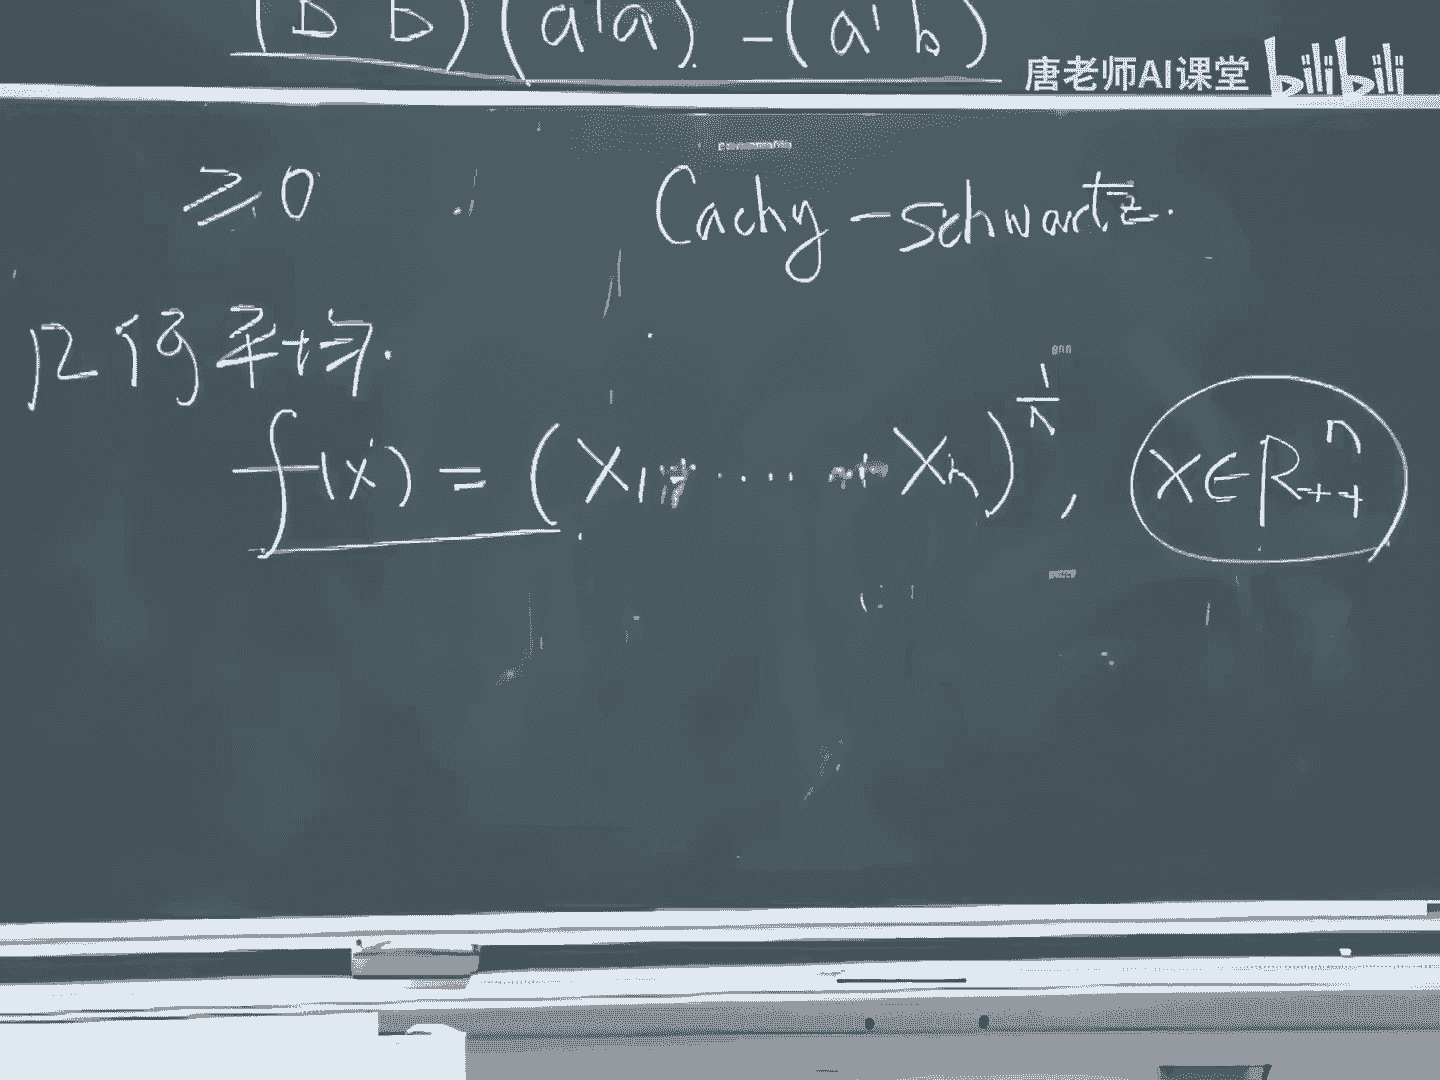 (b b)(a'a) - (a'b)
唐老师AI课堂 bilibili
≥0
Cachy-schwartz.
几何平均.
f(x) = (x₁ ····· xₙ)^{1/n}, x∈R^n_{++}